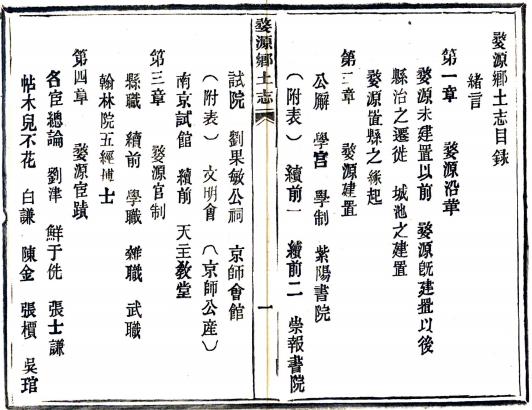 婺源鄉土志目錄
緒言
第一章 婺源沿革
婺源未建置以前 婺源既建置以後
縣治之遷徙 城池之建置
婺源置縣之緣起
第二章 婺源建置
公廨 學宮 學制 紫陽書院
(附表) 續前一 續前二 崇報書院
婺源鄉土志 一
試院 劉果敏公祠 京師會館
(附表) 文明會 (京師公產)
南京試館 續前 天主教堂
第三章 婺源官制
縣職 續前 學職 雜職 武職
翰林院五經博士
第四章 婺源宦蹟
名宦總論 劉津 鮮于侁 張士謙
帖木兒不花 白謙 陳金 張檟 吳琯